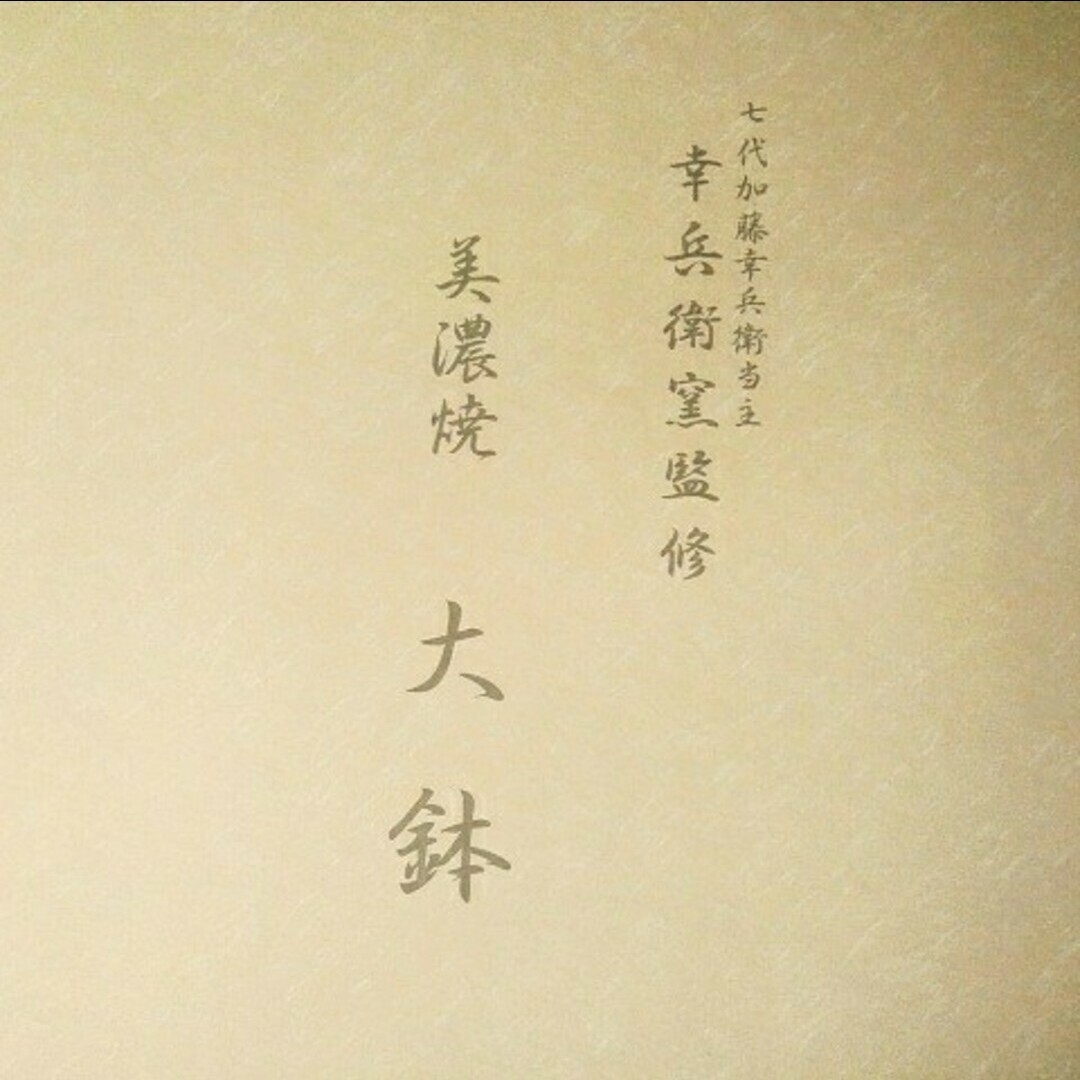 七代加藤幸兵衛当主
幸兵衛窯監修
美濃焼
大鉢